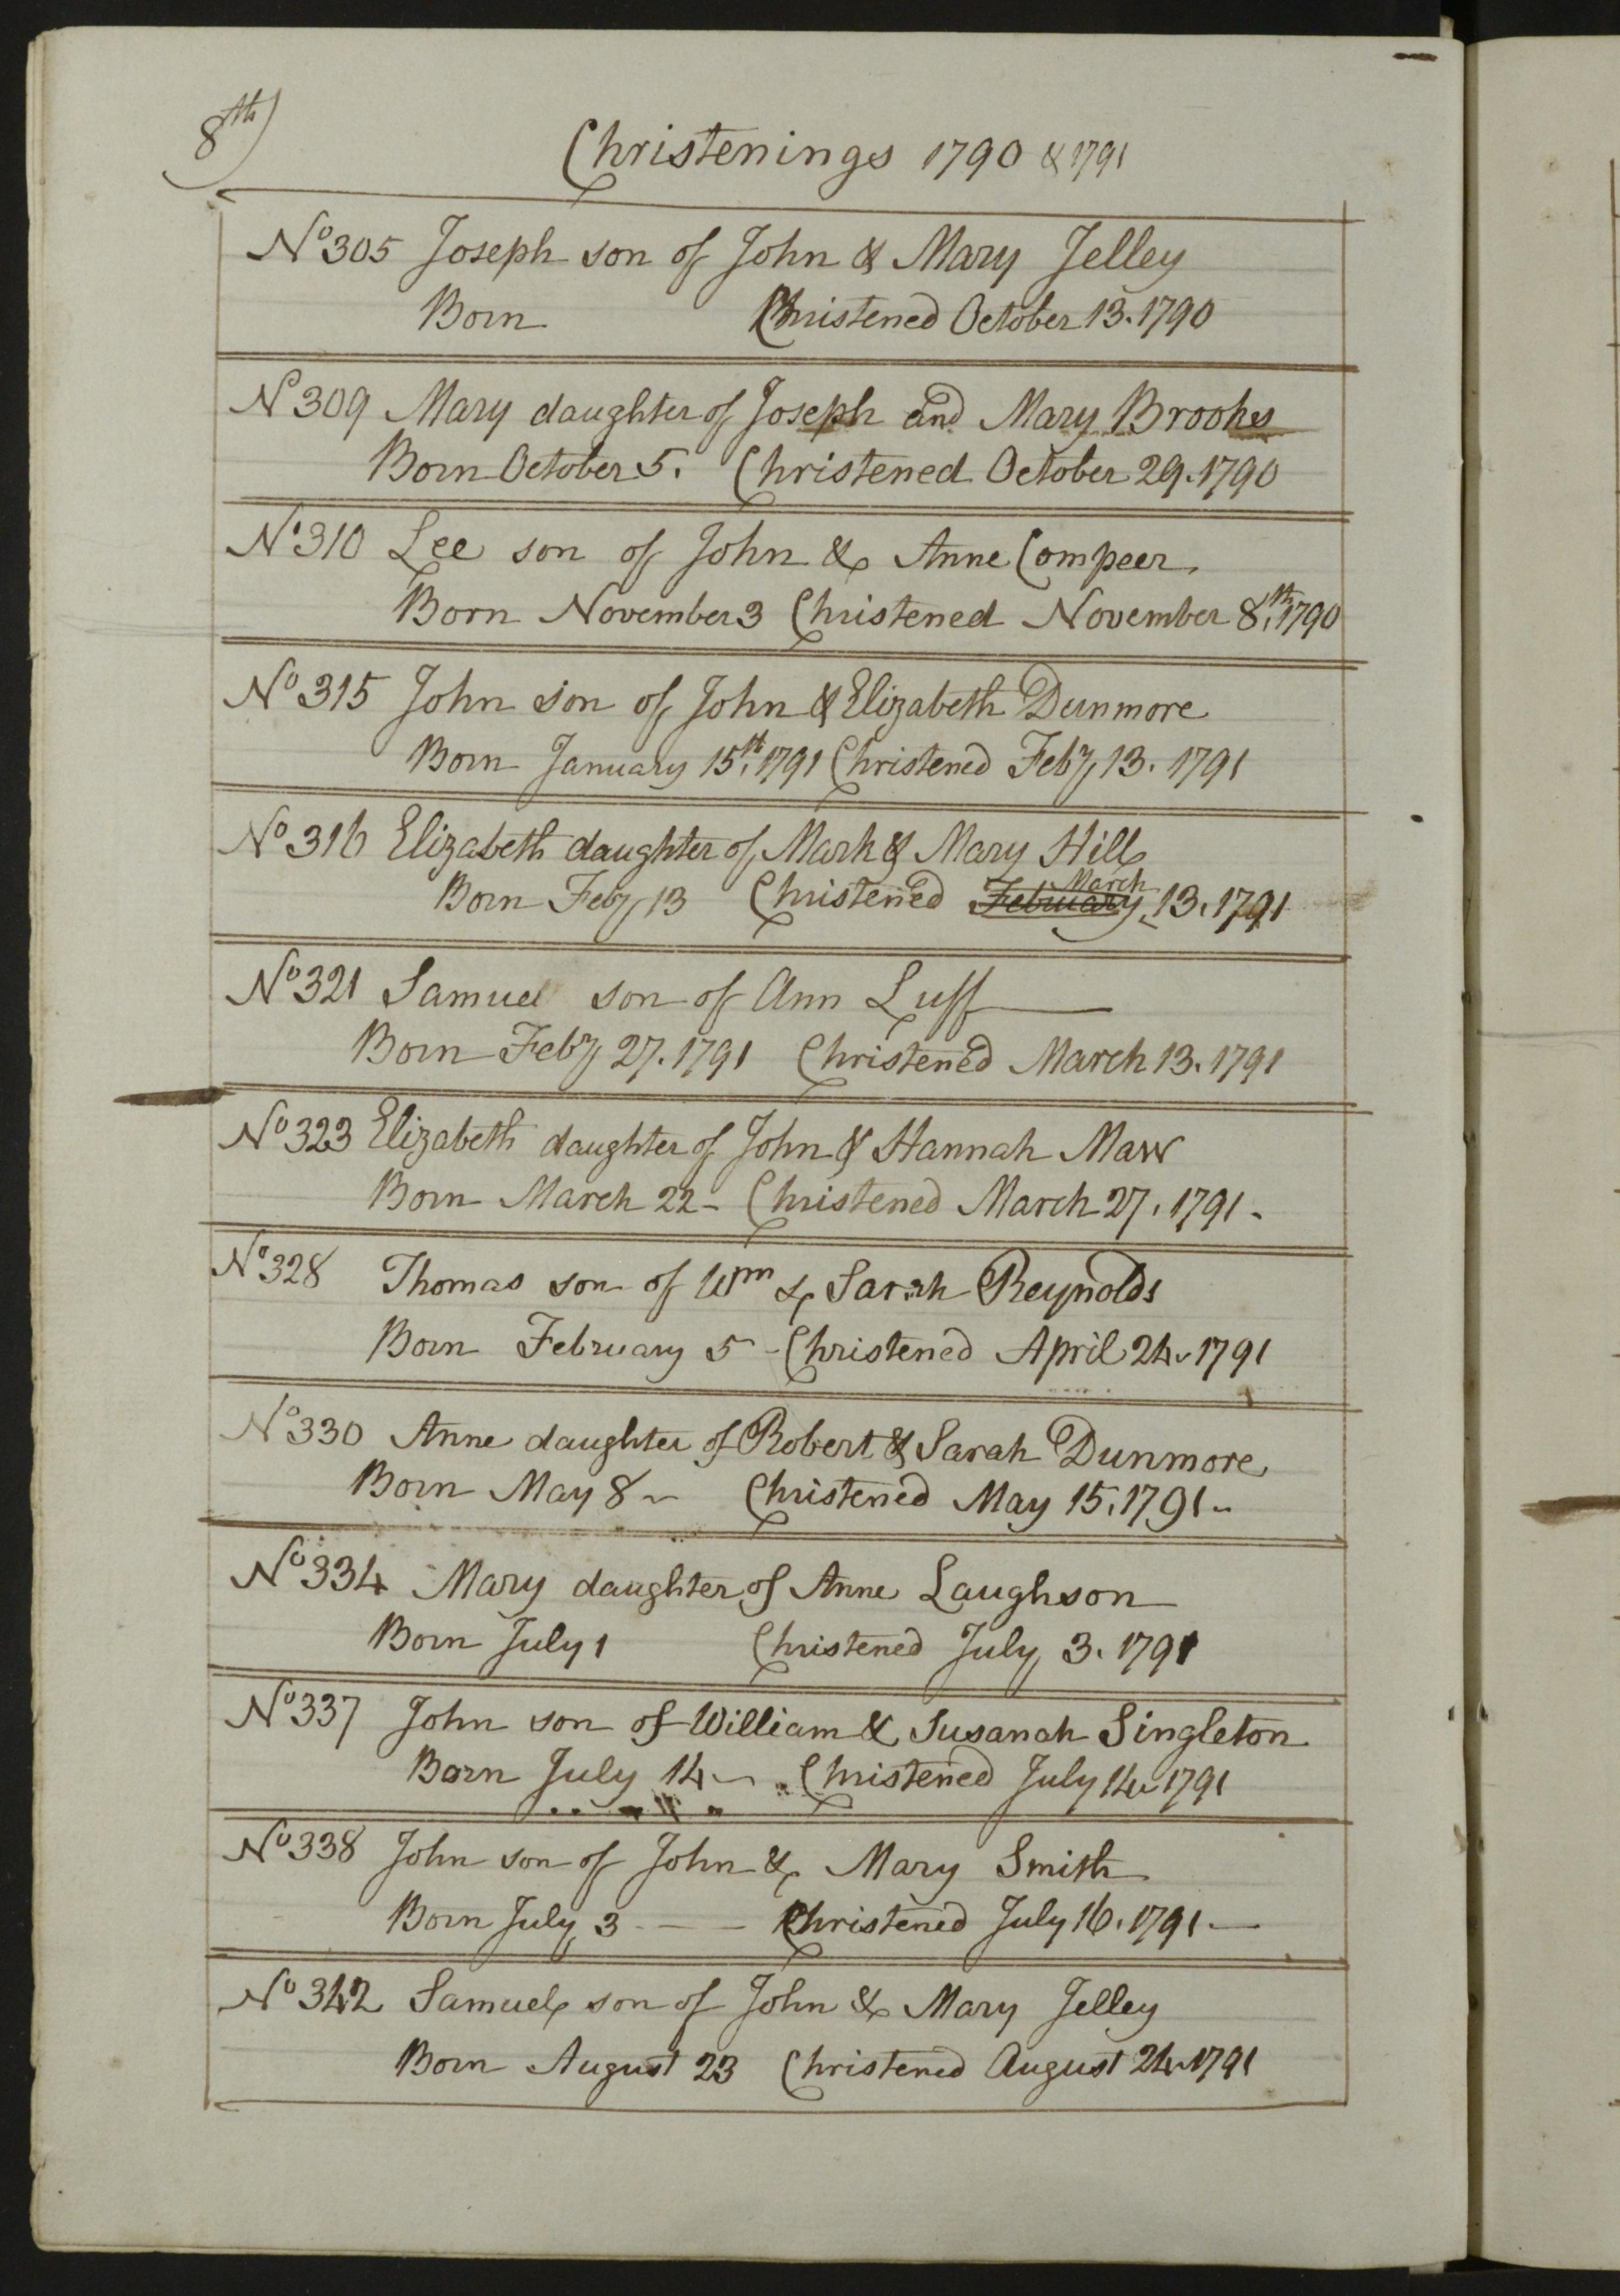 8th)
Christenings 1790 & 1791
No 305 Joseph son of John & Mary Jelley
Born Christened October 13. 1790
No 309 Mary daughter of Joseph and Mary Brookes
Born October 5. Christened October 29. 1790
No 310 Lee son of John & Anne Compeer
Born November 3 Christened November 8th, 1790
No 315 John son of John & Elizabeth Dunmore
Born January 15th, 1791 Christened Feby 13. 1791
No 316 Elizabeth daughter of Mark & Mary Hill
March
Born Feby 13 Christened February 13. 1791
No 321 Samuel son of Ann Luff
Born Feby 27. 1791 Christened March 13. 1791
No 323 Elizabeth daughter of John & Hannah Maw
Born March 22 - Christened March 27. 1791 -
No 328 Thomas son of Wm & Sarah Reynolds
Born February 5 - Christened April 24 - 1791
No 330 Anne daughter of Robert & Sarah Dunmore
Born May 8 - Christened May 15. 1791 -
No 334 Mary daughter of Anne Laughson
Born July 1 Christened July 3. 1791
No 337 John son of William & Susanah Singleton
Born July 14 - Christened July 14 - 1791
No 338 John son of John & Mary Smith
Born July 3 - - - Christened July 16. 1791 -
No 342 Samuel son of John & Mary Jelley
Born August 23 Christened August 24 - 1791